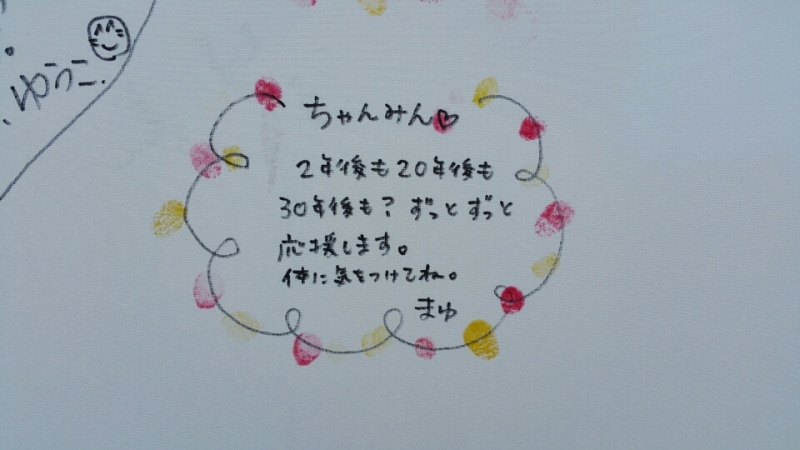 ゆうこ.
ちゃんみん♡
2年後も20年後も
30年後も?ずっとずっと
応援します。
体に気をつけてね。
まゆ